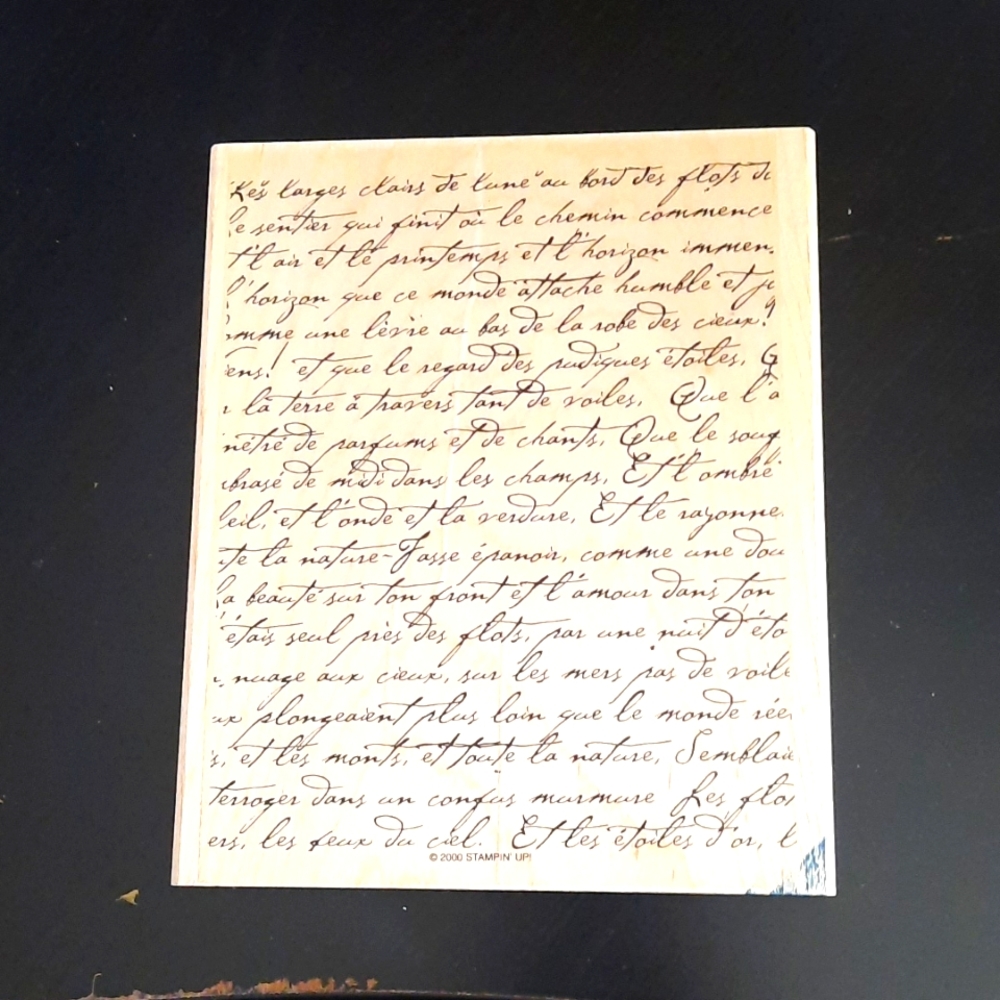 Les larges clairs de lune au bord des flots d
le sentier qui finit où le chemin commence
t l'air et le printemps et l'horizon immen
l'horizon que ce monde attache humble et j
omme une lèvre au bas de la robe des cieux!
ens! et que le regard des pudiques étoiles, Q
r la terre à travers tant de voiles, Que l'a
nétré de parfums et de chants, Que le souf
brasé de midi dans les champs, Et l'ombre
leil, et l'onde et la verdure, Et le rayonne
te la nature-Fasse épanoir, comme une dou
La beauté sur ton front et l'amour dans ton
'étais seul près des flots, par une nuit d'éto
nuage aux cieux, sur les mers pas de voile
ux plongeaient plus loin que le monde rée
s, et les monts, et toute la nature, Semblaie
terroger dans un confus murmure Les flot
ers, les feux du ciel. Et les étoiles d'or, l
© 2000 STAMPIN' UP!